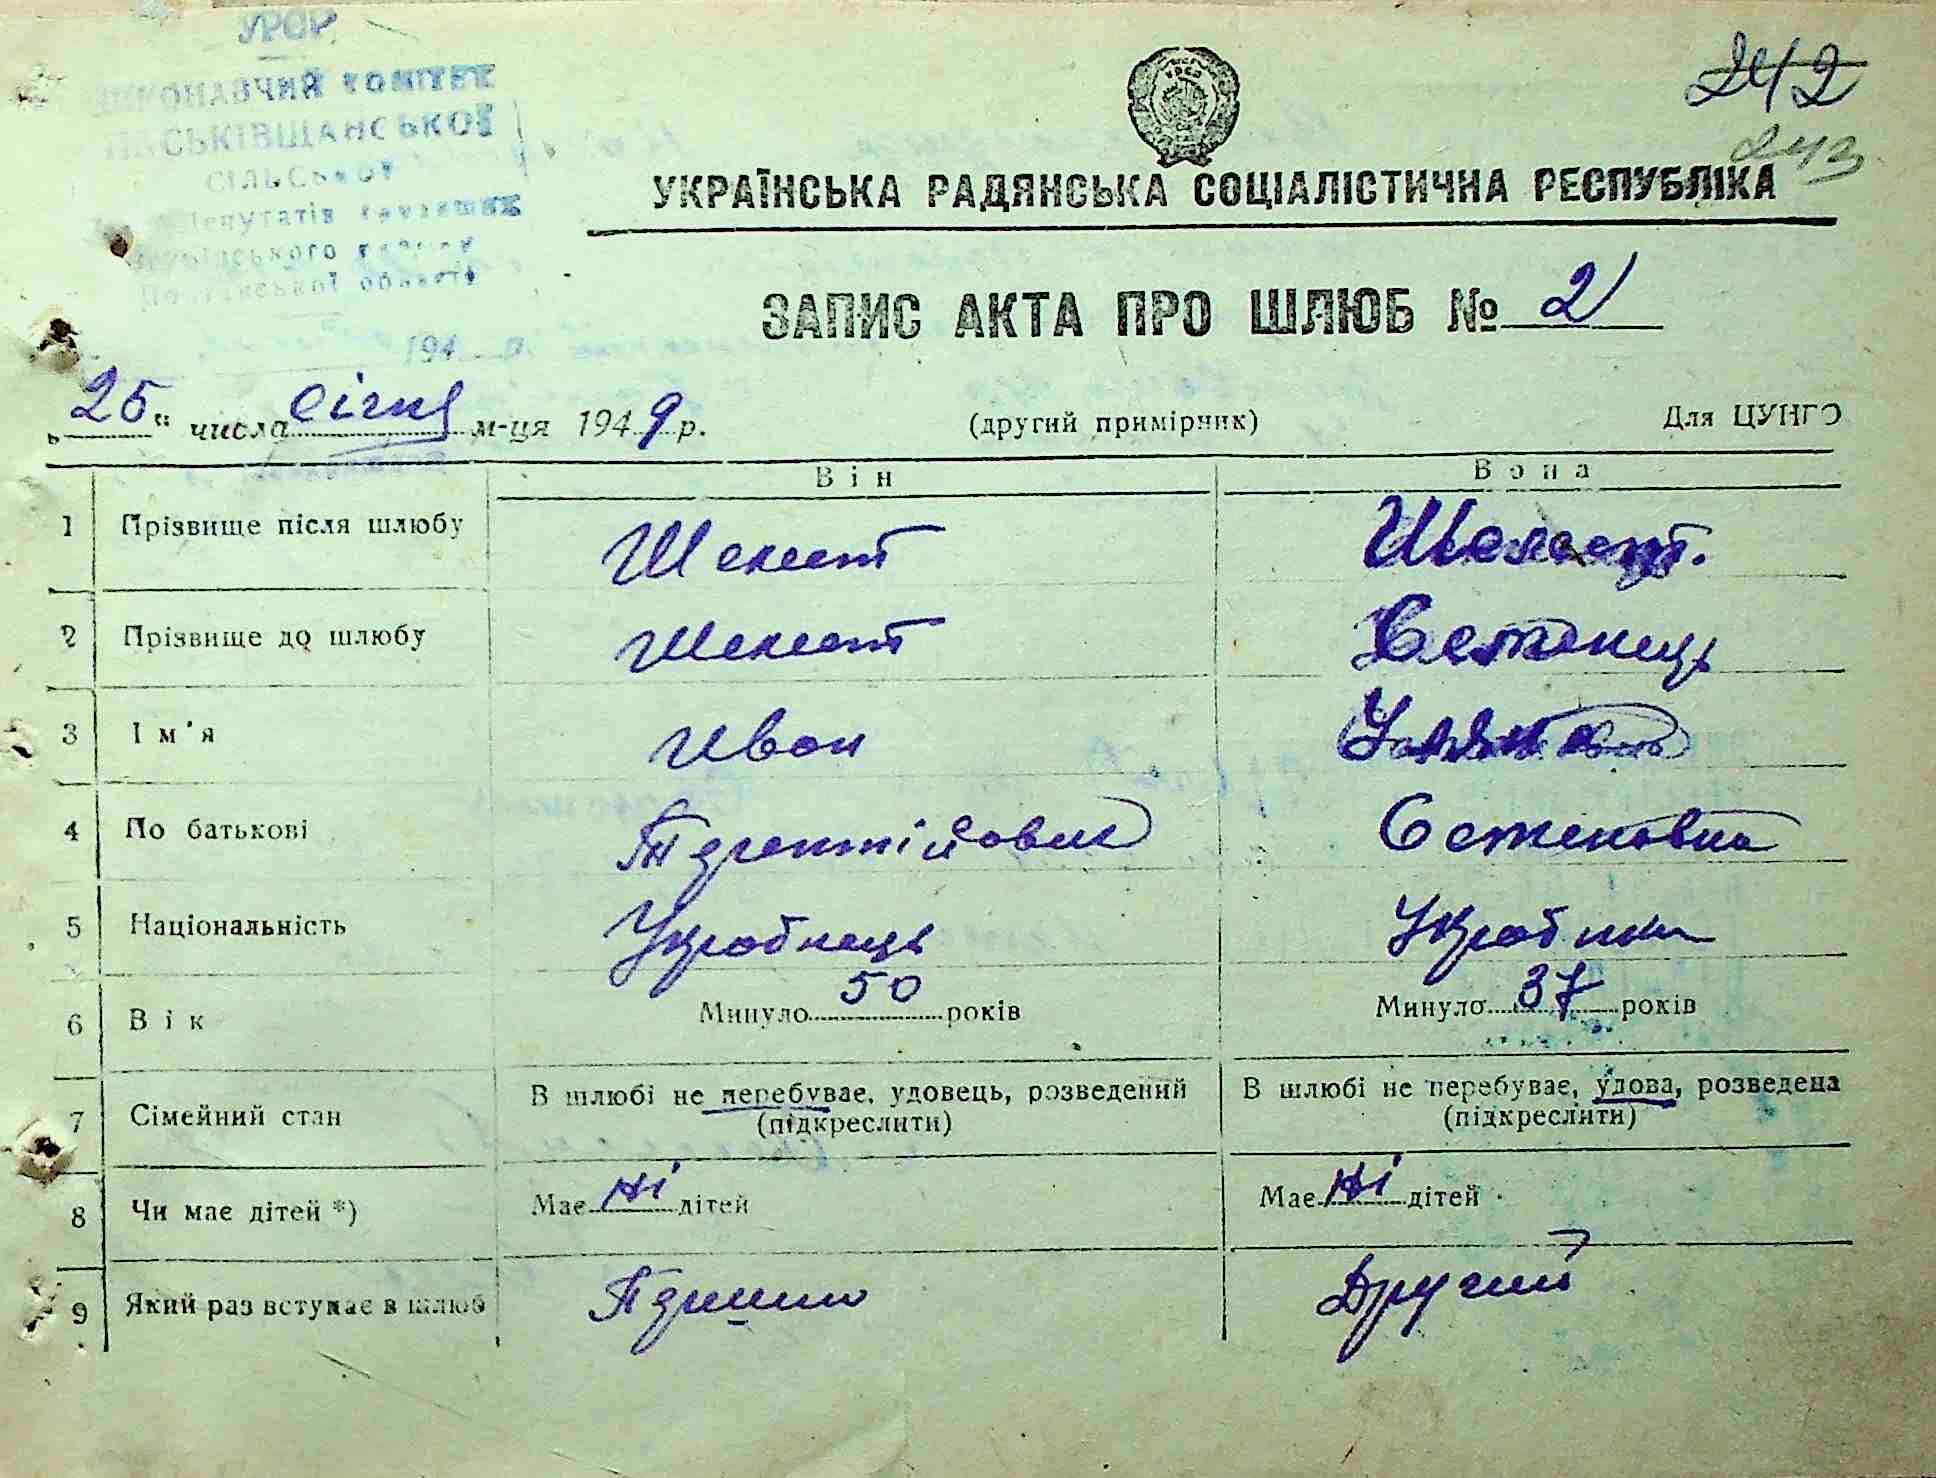 УРСР
ВИКОНАВЧИЙ КОМІТЕТ
СІЛЬСЬКОЇ
депутатів трудящих
області
194 р.
242
243
УКРАЇНСЬКА РАДЯНСЬКА СОЦІАЛІСТИЧНА РЕСПУБЛІКА
ЗАПИС АКТА ПРО ШЛЮБ № 2
„25“ числа січня м-ця 1949 р. (другий примірник) Для ЦУНГО
Він Вона
1 Прізвище після шлюбу Шелест Шелест.
2 Прізвище до шлюбу Шелест
3 Ім'я Иван
4 По батькові Терентійович Остаповна
5 Національність Українець Українка
6 Вік Минуло 50 років Минуло 37 років
7 Сімейний стан В шлюбі не перебуває, удовець, розведений (підкреслити) В шлюбі не перебуває, удова, розведена (підкреслити)
8 Чи має дітей *) Має ні дітей Має ні дітей
9 Який раз вступає в шлюб Другий